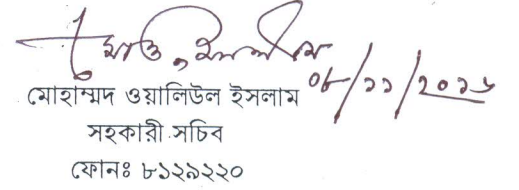 ০৮/১১/২০১৬
মোহাম্মদ ওয়ালিউল ইসলাম
সহকারী সচিব
ফোনঃ ৮১২৯২২০